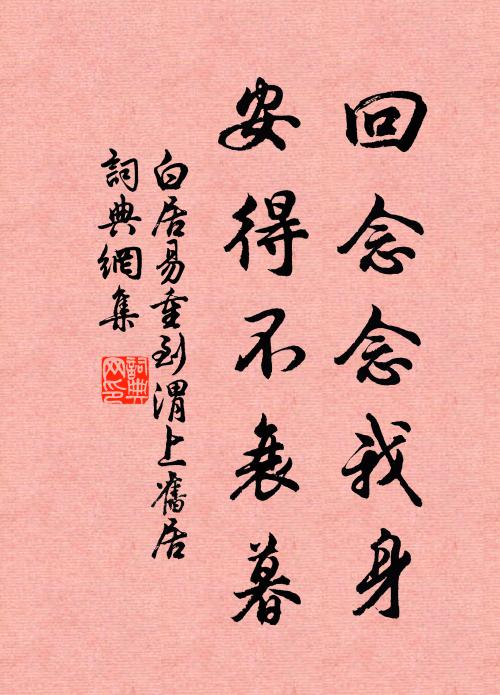 回念念我身
安得不衰暮
白居易重到渭上舊居
詞典網集
詞典
网印